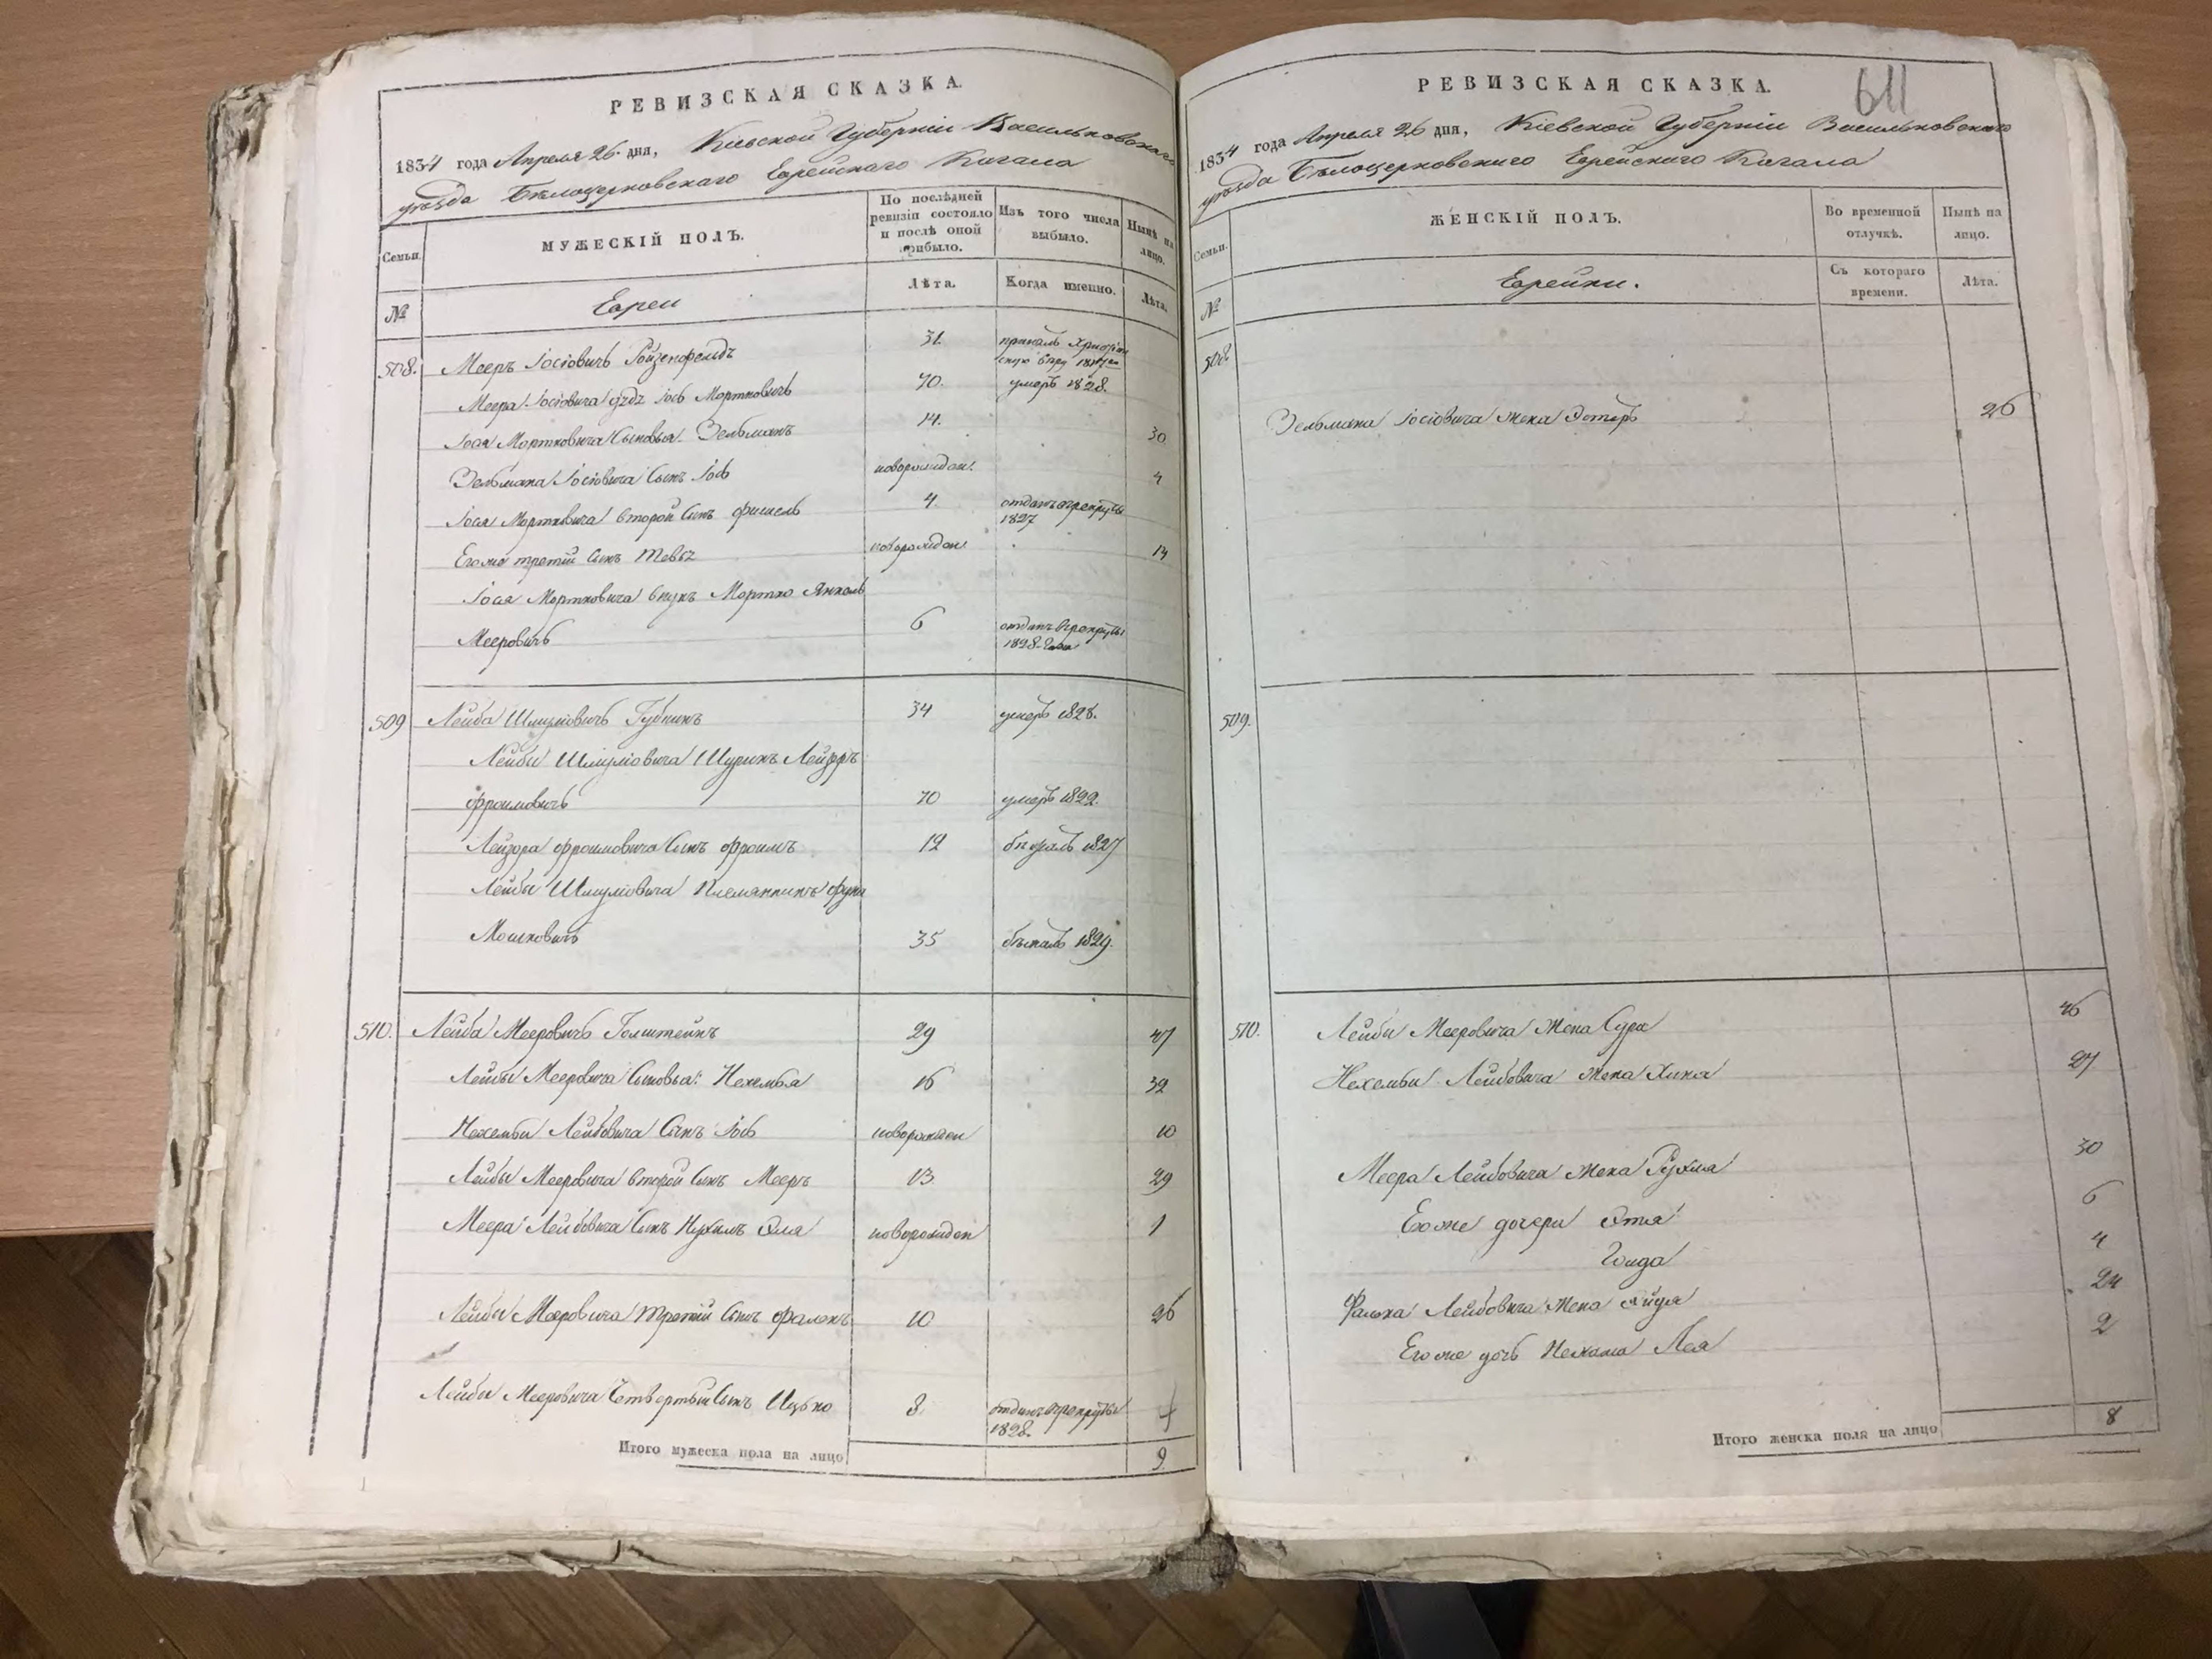 РЕВИЗСКАЯ СКАЗКА.
1834 года Апреля 26 дня, Кіевской Губерніи Васильковскаго
уѣзда Бѣлоцерковскаго Еврейскаго Кагала
Семьи. МУЖЕСКІЙ ПОЛЪ. По послѣдней ревизіи состояло и послѣ оной прибыло. Изъ того числа выбыло. Нынѣ на лицо.
№ Евреи Лѣта. Когда именно. Лѣта.
508. Мееръ Іосіовичъ 31. принялъ
скую вѣру
Меера Іосіовича Іось Мортковичъ 70. умеръ 1828.
Іося Мортковича Сыновья. Зельманъ 14. 30
Зельмана Іосіовича Сынъ Іось новорожден. 4
Іося Мортковича второй Сынъ Фишель 4. отданъ в рекруты
1827
Его же третій Сынъ Тевье новорожден. 14
Іося Мортковича внукъ Мортко Янкель
Мееровичъ 6 отданъ в рекруты
1828 года
509 Лейба Шмуліовичъ Губникъ 34 умеръ 1828.
Лейбы Шмуліовича Шуринъ Лейзоръ
Фроимовичъ 70 умеръ 1822.
Лейзора Фроимовича Сынъ Фроимъ 12 бѣжалъ 1827
Лейбы Шмуліовича Племянникъ
Мошковичъ 35 бѣжалъ 1829.
510. Лейба Мееровичъ Голштейнъ 29 47
Лейбы Мееровича Сыновья: Нехемья 16 32
Нехемьи Лейбовича Сынъ Іось новорожден 10
Лейбы Мееровича второй Сынъ Мееръ 13 29
Меера Лейбовича Сынъ Нухимъ Эля новорожден 1
Лейбы Мееровича третій Сынъ Фалекъ 10 26
Лейбы Мееровича Четвертый Сынъ Ицько 8. отданъ в рекруты
1828.
Итого мужеска пола на лицо 9.
РЕВИЗСКАЯ СКАЗКА. 611
1834 года Апреля 26 дня, Кіевской Губерніи Васильковскаго
уѣзда Бѣлоцерковскаго Еврейскаго Кагала
Семьи. ЖЕНСКІЙ ПОЛЪ. Во временной отлучкѣ. Нынѣ на лицо.
№ Еврейки. Съ котораго времени. Лѣта.
508.
Зельмана Іосіовича жена Эстеръ 26
509.
510. Лейбы Мееровича Жена Сура 46
Нехемьи Лейбовича жена Хина 27
Меера Лейбовича жена Рухля 30
Его же дочери Этя 6
4
Фалька Лейбовича жена 24
Его же дочь Нехама Лея 2
Итого женска пола на лицо 8